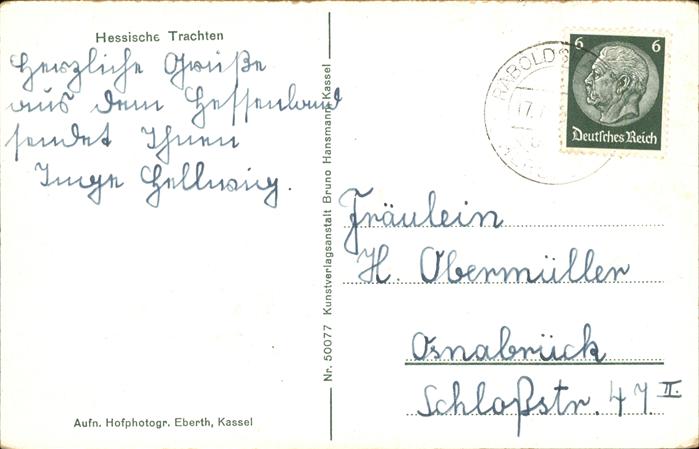 Hessische Trachten
Herzliche Grüße
aus dem Hessenland
sendet Ihnen
Inge Hellwig.
Aufn. Hofphotogr. Eberth, Kassel
Nr. 50077 Kunstverlagsanstalt Bruno Hansmann, Kassel
RABOLD
17.
6 6
Deutsches Reich
Fräulein
H. Obermüller
Osnabrück
Schloßstr. 47 II.